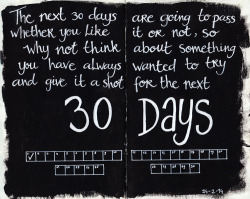 The next 30 days are going to pass
whether you like it or not, so
why not think about something
you have always wanted to try
and give it a shot for the next
30 Days